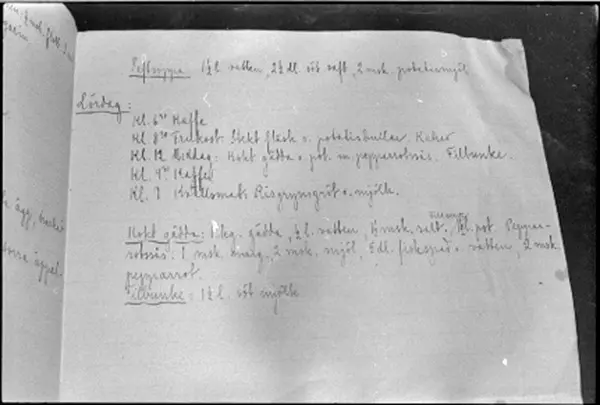 Saftsoppa: 1½ l. vatten, 2½ dl. söt saft, 2 msk. potatismjöl
Lördag:
Kl. 6 Kaffe
Kl. 8 Frukost: Stekt fläsk o. potatisbullar.
Kl. 12 Middag: Kokt gädda o. pot. m. pepparrotsås. Filbunke.
Kl. 4 Kaffe
Kl. 7 Kvällsmat: Risgrynsgröt o. mjölk.
Kokt gädda: 1 kg. gädda, ½ l. vatten, ½ msk. salt. pot. Peppar-
rotssås: 1 msk. smörg., 2 msk. mjöl, 5 dl. fiskspad o. vatten, 2 msk.
pepparrot.
Filbunke: 1½ l. söt mjölk